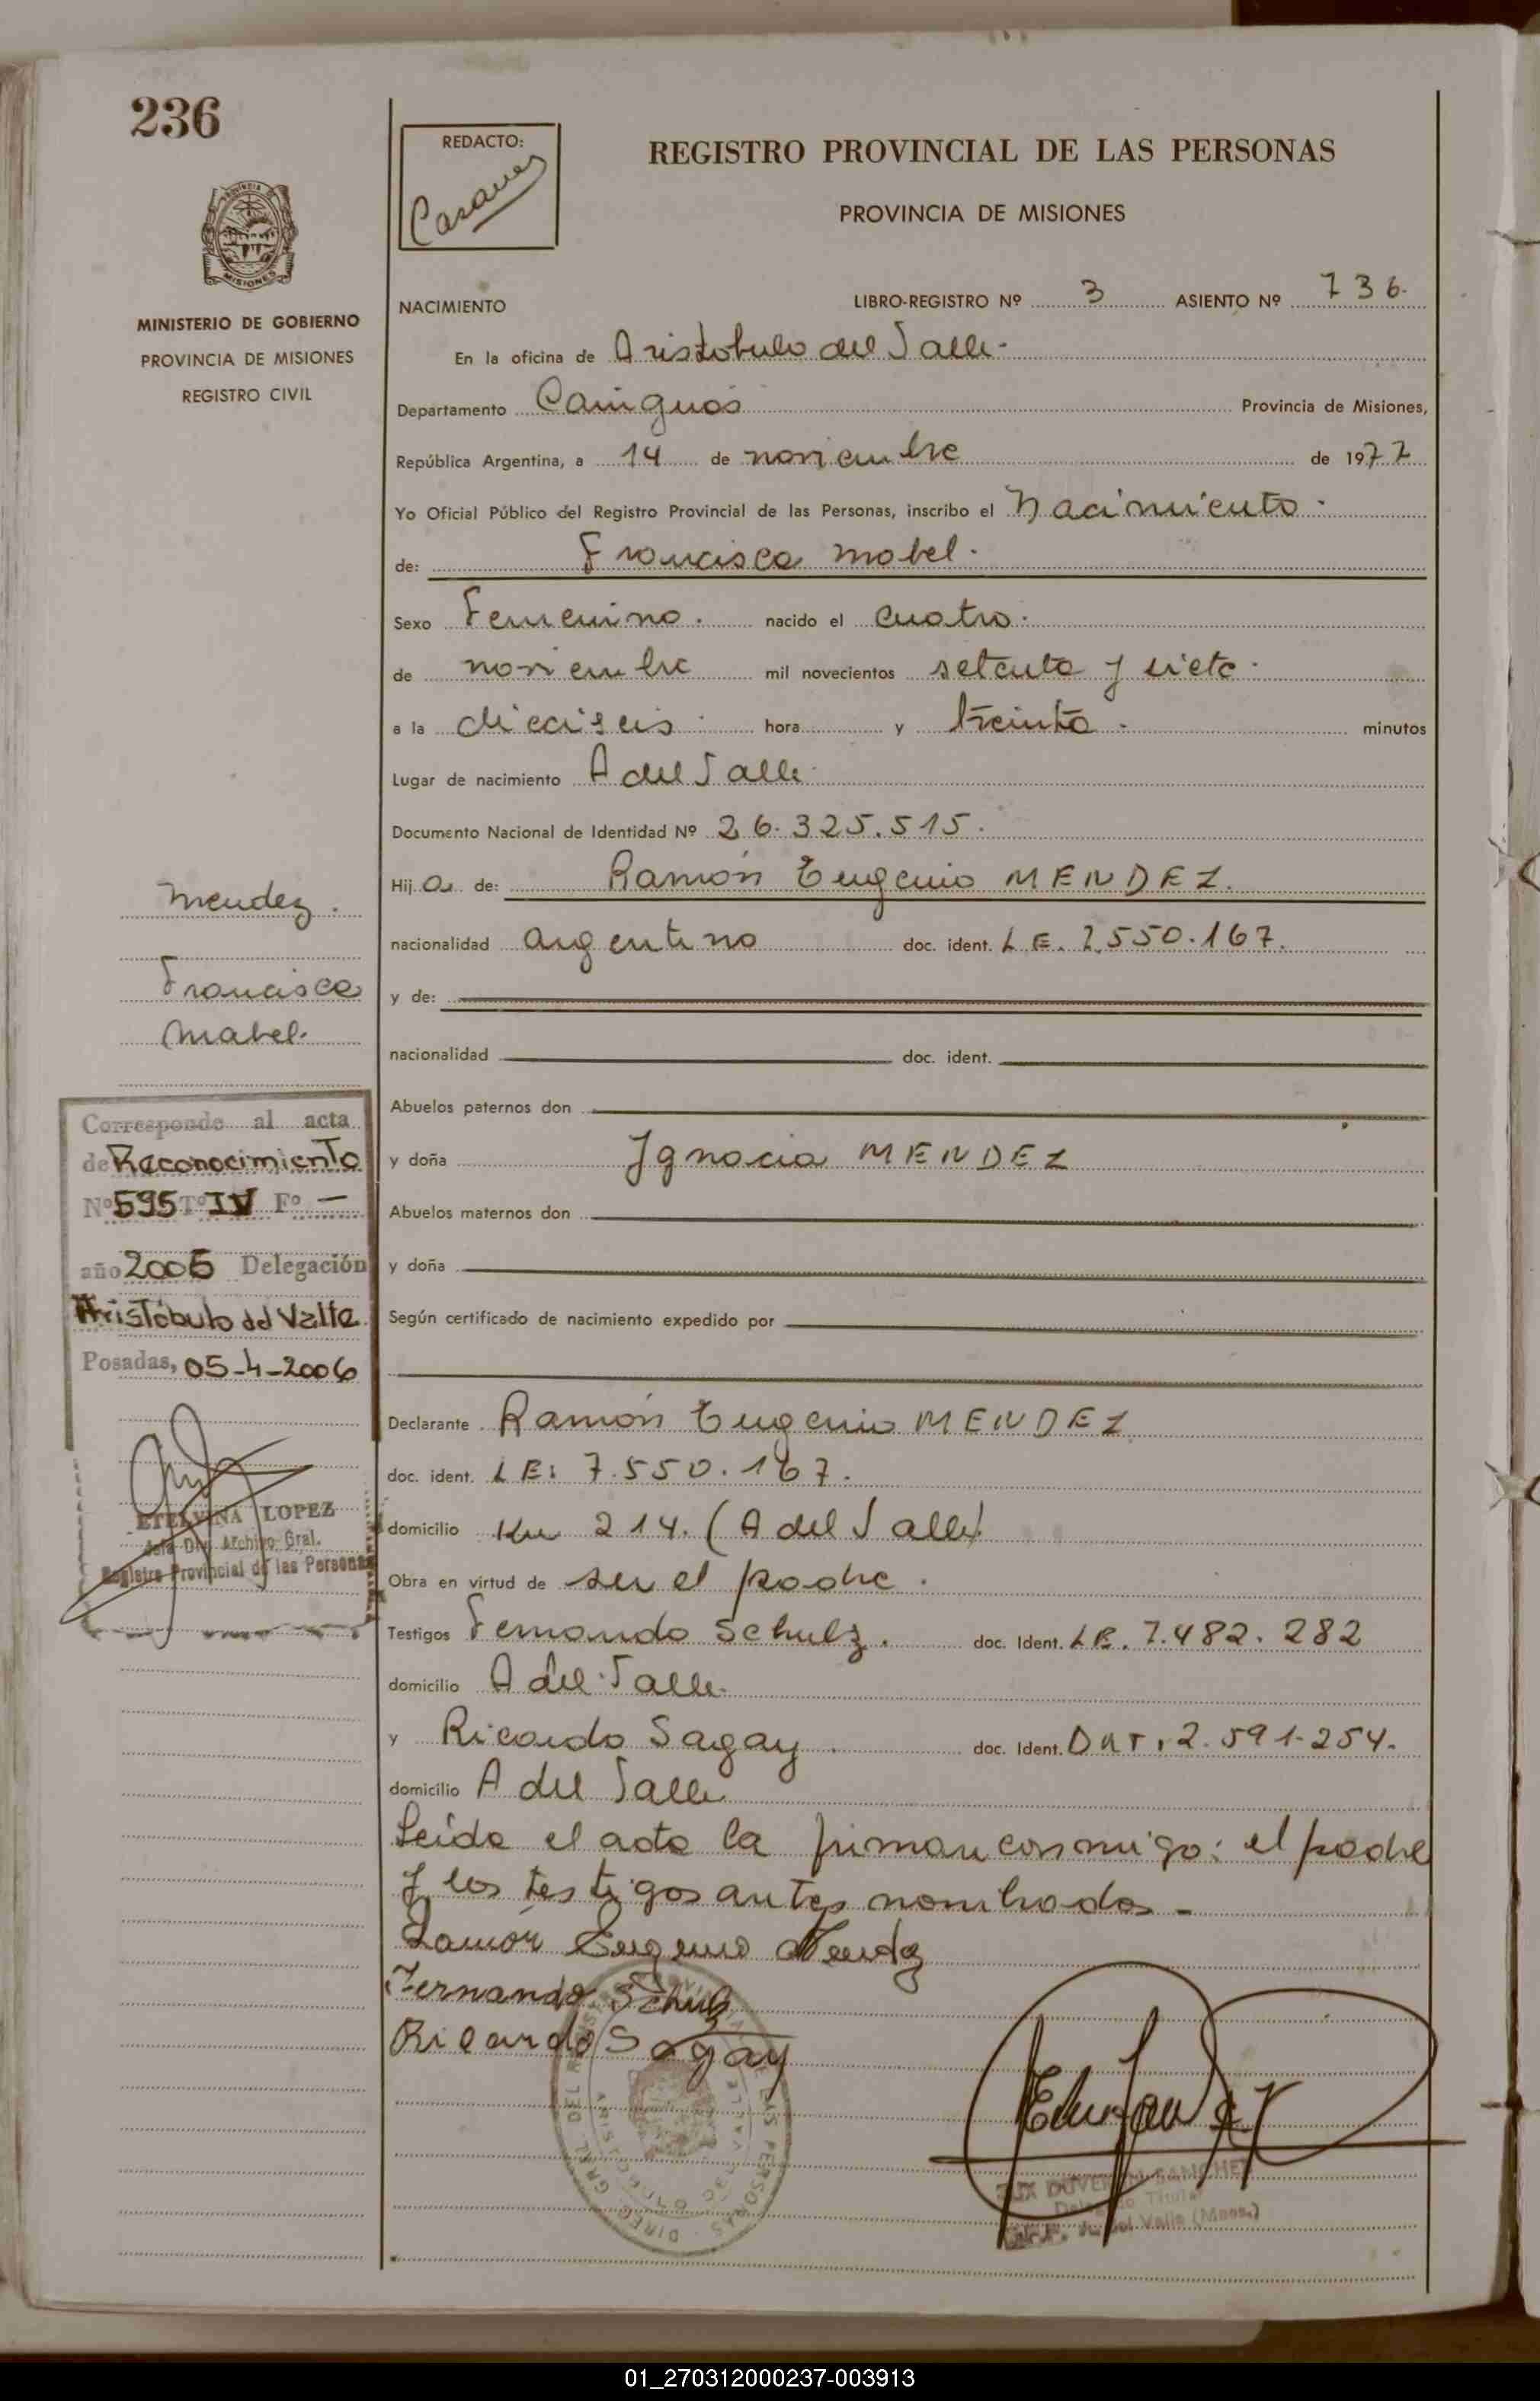 236
REDACTO:
Casanes
REGISTRO PROVINCIAL DE LAS PERSONAS
PROVINCIA DE MISIONES
MISIONES
MINISTERIO DE GOBIERNO
PROVINCIA DE MISIONES
REGISTRO CIVIL
NACIMIENTO LIBRO-REGISTRO Nº 3 ASIENTO Nº 736.
En la oficina de Aristobulo del Valle.
Departamento Cainguás Provincia de Misiones,
República Argentina, a 14 de noviembre de 1977
Yo Oficial Público del Registro Provincial de las Personas, inscribo el Nacimiento.
de: Francisca Mabel.
Sexo Femenino. nacido el cuatro.
de noviembre mil novecientos setenta y siete.
a la dieciseis. hora y treinta. minutos
Lugar de nacimiento A del Valle.
Documento Nacional de Identidad Nº 26.325.515.
Hij a de: Ramón Eugenio MENDEZ.
nacionalidad argentino doc. ident. L E. 7.550.167.
y de:
nacionalidad doc. ident.
Abuelos paternos don
y doña Ignacia MENDEZ
Abuelos maternos don
y doña
Según certificado de nacimiento expedido por
Declarante Ramón Eugenio MENDEZ
doc. ident. L E: 7.550.167.
domicilio Km 214. (A del Valle)
Obra en virtud de ser el padre.
Testigos Fernando Schulz. doc. Ident. L E. 7.482.282
domicilio A del Valle.
y Ricardo Sagay doc. Ident. 2.591.254.
domicilio A del Valle
Leída el acta la firman conmigo: el padre
y los testigos antes nombrados.-
Ramón Eugenio Mendez
Fernando Schulz
Ricardo Sagay
Mendez.
Francisca
Mabel.
Corresponde al acta
de Reconocimiento
Nº 595 Tº IV Fº —
año 2005 Delegación
Aristóbulo del Valle
Posadas, 05-4-2006
ETELVINA LOPEZ
Jefa Div. Archivo Gral.
Registro Provincial de las Personas
SANCHEZ
Titular
del Valle (Mnes.)
01_270312000237-003913